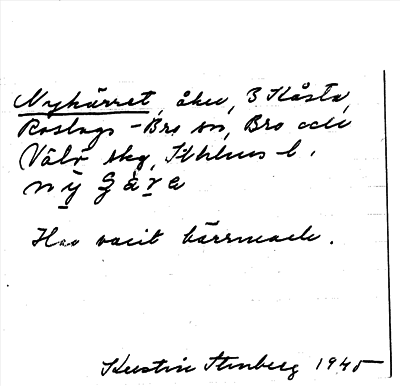 Nykärret, åker, 3 Håsta,
Roslags-Bro sn, Bro och
Vätö skg, Sthlms l.
nỵ
Har varit kärrmark.
Kerstin Stenberg 1945